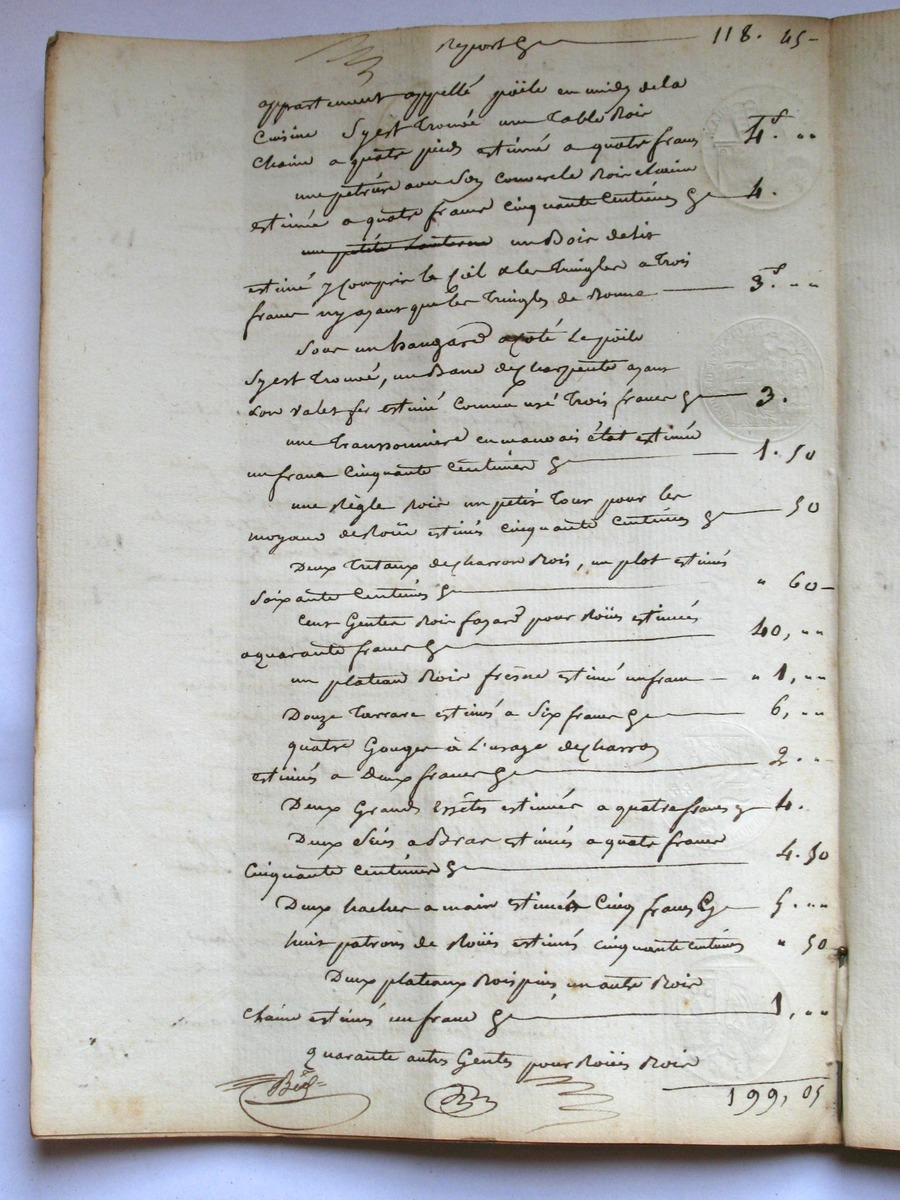 Report 118. 45
appartement appellé poële en midy de la
Cuisine Syest trouvé une table Bois
Chaine a quatre pieds estimé a quatre francs 4.f "
une petrière avec Son couvercle Bois chaine
estimée a quatre francs cinquante Centimes 4.
une petite Lanterne un Bois de lit
estimé y Compris le Ciel & les tringles a trois
francs ny ayant que les tringles de Bonne 3.f "
Sous un hangard acoté Le poële
Syest trouvé, un Banc de charpente ayant
Son valet fer estimé comme usé trois francs 3.
une transsonnière en mauvais état estimée
un franc Cinquante Centimes 1. 50
une Règle Bois un petit tour pour les
moyeux de Roüe estimés cinquante Centimes 50
Deux tretaux de charron Bois, un plot estimés
Soixante Centimes " 60
Cent Gentes Bois fayard pour Roües estimées
aquarante francs 40, "
un plateau Bois fresne estimé un franc " 1, "
Douze tarrare estimés a Six francs 6, "
quatre Gouges à L'usage de charron
estimés a Deux francs 2. "
Deux Grands Essêtes estimées a quatre francs 4.
Deux Seies a Bras estimés a quatre francs
Cinquante Centimes 4. 50
Deux haches a main estimés Cinq francs 5. "
huit patrons de Roües estimés cinquante centimes " 50
Deux plateaux Bois pin, un autre Bois
Chaine estimés un franc 1, "
quarante autres Gentes pour Roües Bois
199, 05